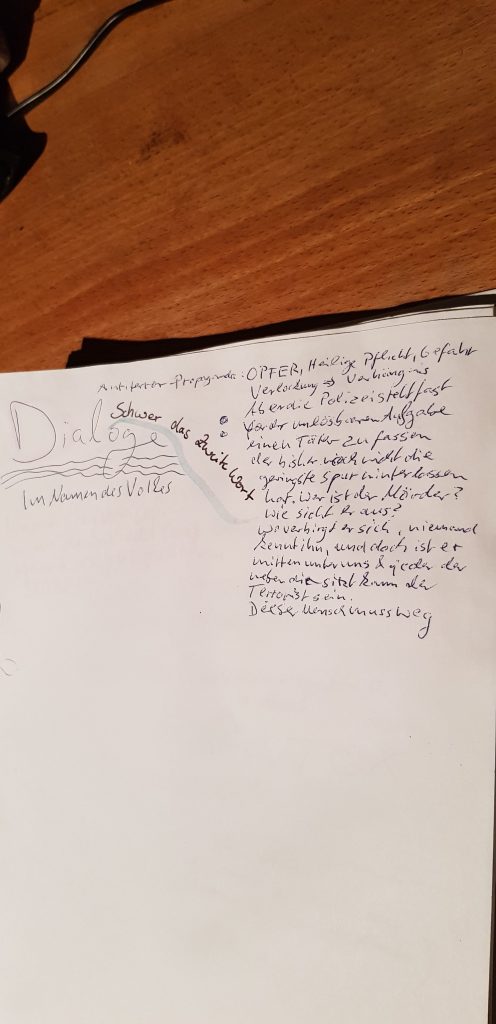 Antiterror-Propaganda: OPFER, Heilige Pflicht, Gefahr
Verlockung → Verhängnis
Aber die Polizei steht fast
vor der unlösbaren Aufgabe
einen Täter zu fassen
der bisher noch nicht die
geringste Spur hinterlassen
hat. Wer ist der Mörder?
Wie sieht er aus?
Wo verbirgt er sich, niemand
kennt ihn, und doch ist er
mitten unter uns & jeder der
neben dir sitzt kann der
Terrorist sein.
Dieser Mensch muss weg
Dialoge
Im Namen des Volkes
Schwer das zweite Wort